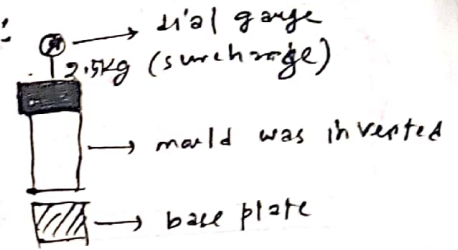 dial gauge
2.5kg (surcharge)
mould was inverted
base plate